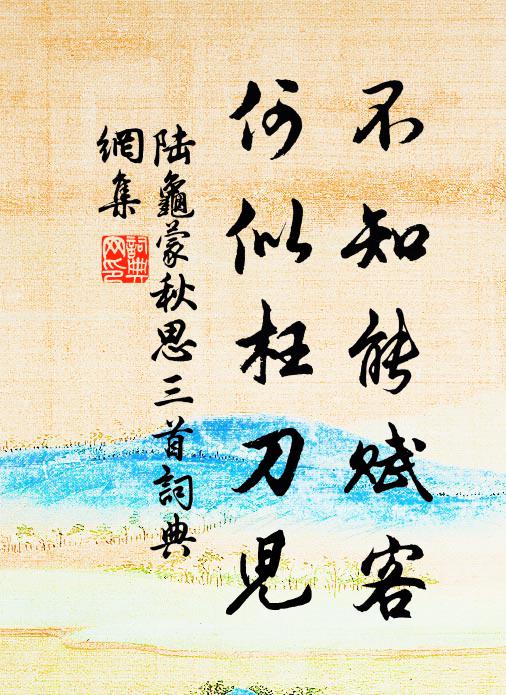 不知能赋客
何似枉刀児
陆龜蒙秋思三首詞典
網集
詞典
网印